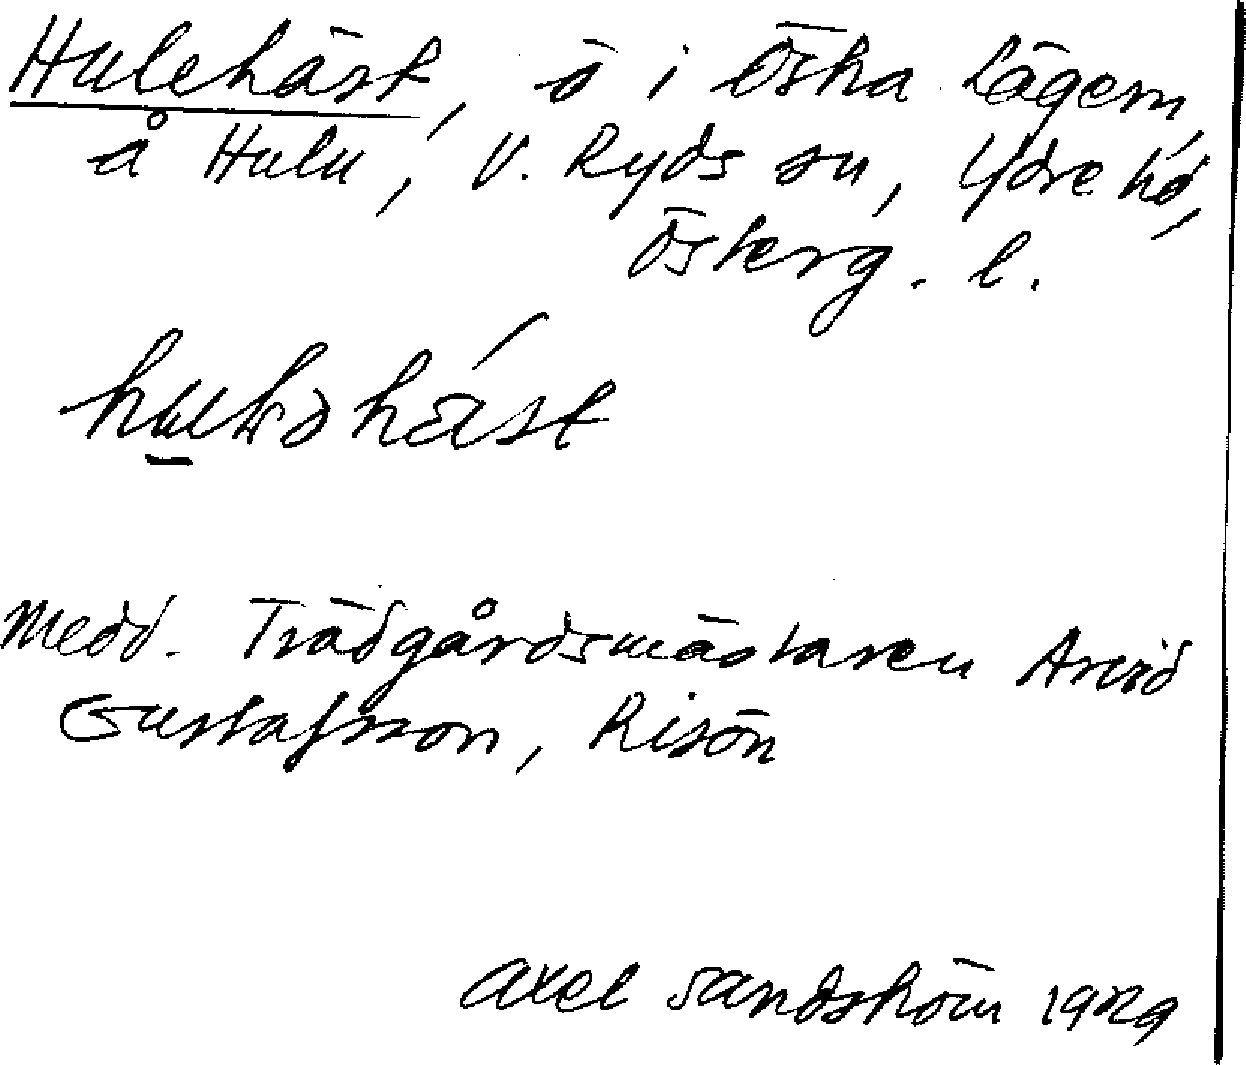 Hulehäst, ö i Östra Lägern,
å Hulu, V. Ryds sn, Ydre hd,
Österg. l.
Medd. Trädgårdsmästaren Arvid
Gustafsson, Risön
Axel Sandström 1929